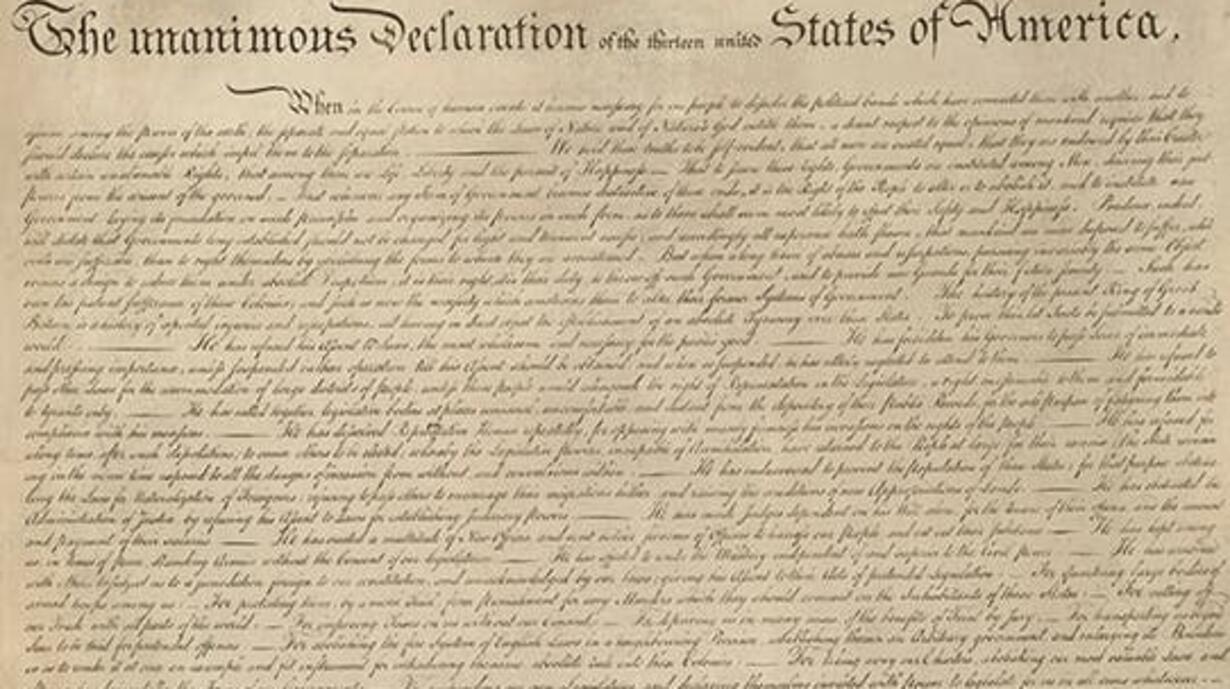 The unanimous Declaration of the thirteen united States of America.
When in the Course of human events it becomes necessary for one people to dissolve the political bands which have connected them with another, and to
among the powers of the earth, the separate and equal station to which the Laws of Nature and of Nature's God entitle them, a decent respect to the opinions of mankind requires that they
should declare the causes which impel them to the separation. We hold these truths to be self-evident, that all men are created equal, that they are endowed by their
with certain unalienable Rights, that among these are Life, Liberty and the pursuit of Happiness. — That to secure these rights, Governments are instituted among Men, deriving their just
powers from the consent of the governed, — That whenever any Form of Government becomes destructive of these ends, it is the Right of the People to alter or to abolish it, and to institute new
Government, laying its foundation on such principles and organizing its powers in such form, as to them shall seem most likely to effect their Safety and Happiness. Prudence, indeed,
will dictate that Governments long established should not be changed for light and transient causes; and accordingly all experience hath shewn, that mankind are more disposed to suffer, while
evils are sufferable, than to right themselves by abolishing the forms to which they are accustomed. But when a long train of abuses and usurpations, pursuing invariably the same Object
to reduce them under absolute Despotism, it is their right, it is their duty, to throw off such Government, and to provide new Guards for their future security. — Such has
been the patient sufferance of these Colonies; and such is now the necessity which constrains them to alter their former Systems of Government. The history of the present King of Great
Britain is a history of repeated injuries and usurpations, all having in direct object the establishment of an absolute Tyranny over these States. To prove this let Facts be submitted to a candid
world. He has refused his Assent to Laws, the most wholesome and necessary for the public good. He has forbidden his Governors to pass Laws of immediate
and pressing importance, unless suspended in their operation till his Assent should be obtained; and when so suspended, he has utterly neglected to attend to them. He has refused to
pass other Laws for the accommodation of large districts of People, unless those People would relinquish the right of Representation in the Legislature, a right inestimable to them and formidable
to tyrants only. He has called together legislative bodies at places unusual, uncomfortable, and distant from the depository of their Public Records, for the sole purpose of fatiguing them into
compliance with his measures. He has dissolved Representative Houses repeatedly, for opposing with manly firmness his invasions on the rights of the people. He has refused for
a long time, after such dissolutions, to cause others to be elected; whereby the Legislative Powers, incapable of Annihilation, have returned to the People at large for their exercise; the State remain
ing in the mean time exposed to all the dangers of invasion from without, and convulsions within. He has endeavoured to prevent the Population of these States; for that purpose obstruct
ing the Laws for Naturalization of Foreigners; refusing to pass others to encourage their migrations hither, and raising the conditions of new Appropriations of Lands. He has obstructed the
Administration of Justice, by refusing his Assent to Laws for establishing Judiciary Powers. He has made Judges dependent on his Will alone, for the tenure of their offices, and the amount
and payment of their salaries. He has erected a multitude of New Offices, and sent hither swarms of Officers to harass our People, and eat out their substance. He has kept among
us, in times of peace, Standing Armies without the Consent of our legislatures. He has affected to render the Military independent of and superior to the Civil power. He has combined
with others to subject us to a jurisdiction foreign to our constitution, and unacknowledged by our laws; giving his Assent to their Acts of pretended Legislation: — For quartering large bodies of
armed troops among us: — For protecting them, by a mock Trial, from Punishment for any Murders which they should commit on the Inhabitants of these States: — For cutting off
our Trade with all parts of the world: — For imposing Taxes on us without our Consent: — For depriving us in many cases, of the benefits of Trial by Jury: — For transporting us beyond
Seas to be tried for pretended offences: — For abolishing the free System of English Laws in a neighbouring Province, establishing therein an Arbitrary government, and enlarging its Boundaries
so as to render it at once an example and fit instrument for introducing the same absolute rule into these Colonies: — For taking away our Charters, abolishing our most valuable Laws, and